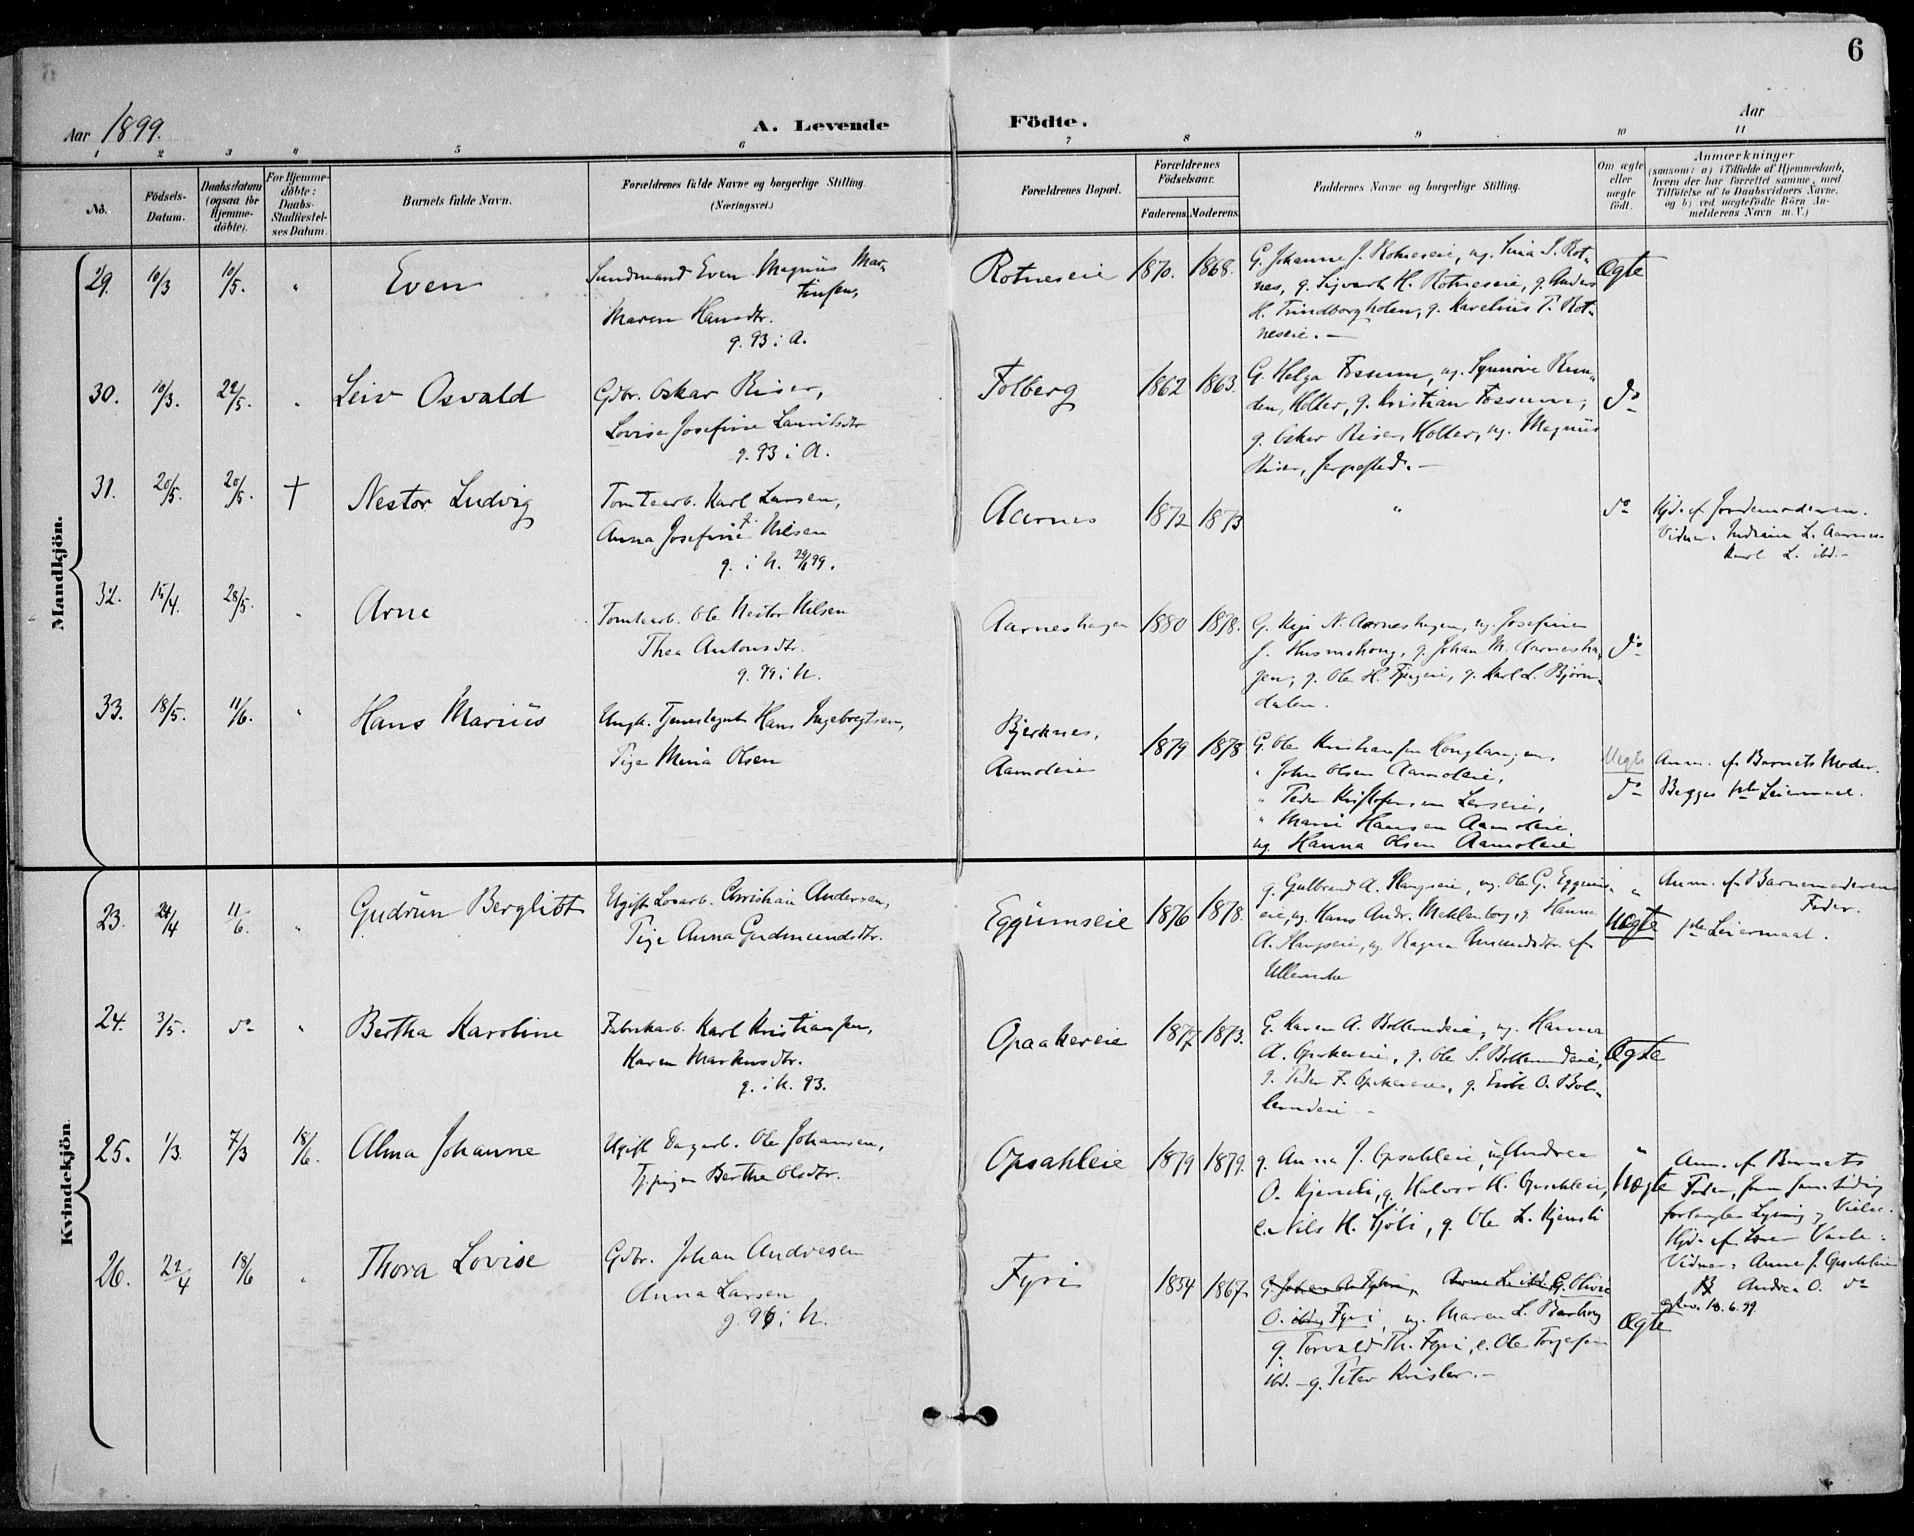 6
Aar 1899.
A. Levende Födte.
Aar
1 2 3 4 5 6 7 8 9 10 11
No.
Födsels-Datum.
Daabsdatum (ogsaa for Hjemme-döbte).
For Hjemme-döbte: Daabs-Stadfæstel-ses Datum.
Barnets fulde Navn.
Forældrenes fulde Navne og borgerlige Stilling.
(Næringsvei.)
Forældrenes Bopæl.
Forældrenes Födselsaar.
Faderens. Moderens.
Faddernes Navne og borgerlige Stilling.
Om ægte eller uægte født.
Anmærkninger
(saasom: a) i Tilfælde af Hjemmedaab,
hvem der har forrettet samme, med
Tilföielse af to Daabsvidners Navne,
og b) ved uægtefödte Börn An-
melderens Navn m. V.)
Mandkjön.
29. 10/3 10/5. "
Even
Sundmand Even Magnus Mar-
tinsen,
Maren Hansdtr.
g. 93 i A.
Rotneseie 1870. 1868.
G. Johanne J. Rotneseie, ug. Lina S. Rot-
nes, g. Sigvart H. Rotneseie, g. Anders
H. Trindborgholen, g. Karelius P. Rot-
neseie. —
Ægte
30. 10/3. 22/5. "
Leiv Osvald
Gdbr. Oskar Riser,
Lovise Josefine Lauritsdtr
g. 93 i A.
Folberg 1862 1863.
G. Helga Fossum, ug. Synnöve Run-
den, Holter, g. Kristian Fossum,
g. Osker Riser, Holter, ug. Magnus
Riser,
do
31. 20/5. 20/5. †
Nestor Ludvig
Tomtearb. Karl Larsen,
Anna Josefine Nilsen
g. i N. 99.
Aarnes 1872 1873
"
do
Hjd. af Jordemoderen.
Vidner: L. Aarnes
Karl L. ibd. -
32. 15/4. 28/5. "
Arne
Tomtearb. Ole Nestor Nilsen
Thea Antonsdtr.
g. 99 i N.
Aarneshagen 1880 1878.
G. N. Aarneshagen, ug. Josefine
J. Husmohoug, g. Johan M. Aarnesha-
gen, g. Ole H. g. Karl L. Björn-
dalen.
do
33. 18/5. 11/6. "
Hans Marius
Ungk. Tjenestegut Hans Ingebregtsen,
Pige Mina Olsen
Bjerknes,
Aamoleie
1879 1878
G. Ole Kristiansen
" John Olsen Aamoleie,
" Peder Kristofersen
" Marie Hansen Aamoleie.
ug. Hanna Olsen Aamoleie
Uegte
do
Anm. af Barnets Moder.
Begges 1ste Leiermaal.
Kvindekjön.
23. 24/4 11/6. "
Gudrun Berglibt
Ugift Losarb. Christian Andersen,
Pige Anna Gudmundsdtr.
Eggumseie 1876 1878.
g. Gulbrand A. Haugseie, ug. Ole G. Eggums-
eie, ug. Hans Andr. Mehlenborg, g. Hanna
A. Haugseie, ug. Ragna Amundsdtr. af
"
Uægte
Anm. af Barnemoderens
Fader.
1ste Leiermaal.
24. 3/5. do "
Bertha Karoline
Fabrikarb. Karl Kristiansen,
Karen Markusdtr.
g. i N. 93.
Opaakereie 1877 1873.
G. Karen A. ug. Hanna
A. g. Ole S.
g. Peder F. g. Erik O.
Ægte
25. 1/3. 7/3 18/6.
Alma Johanne
Ugift Dagarb. Ole Johansen,
Tj.pige Berthe Olsdtr.
Opsahleie 1879 1879.
g. Anna J. Opsahleie, ug Andrea
O. Kjensli, g. Halvor H. Opsahleie,
e. Nils H. Sjöli, g. Ole L. Kjensli
"
Uægte
Anm. af Barnets
Fader, som samtidig
forlangte Lysning og Vielse.
Hjd. af
Vidner: Anne J. Opsahleie
Andrea O. do
18.6.99.
26. 22/4 18/6 "
Thora Lovise
Gdbr. Johan Andresen
Anna Larsen
g. 96 i N.
Fyri 1854 1867.
G. Olivie
O. Fyri, ug. Maren L.
g. Torvald Th. Fyri, e. Ole Torgersen
ibd. - g. Peter Krisler. -
Ægte